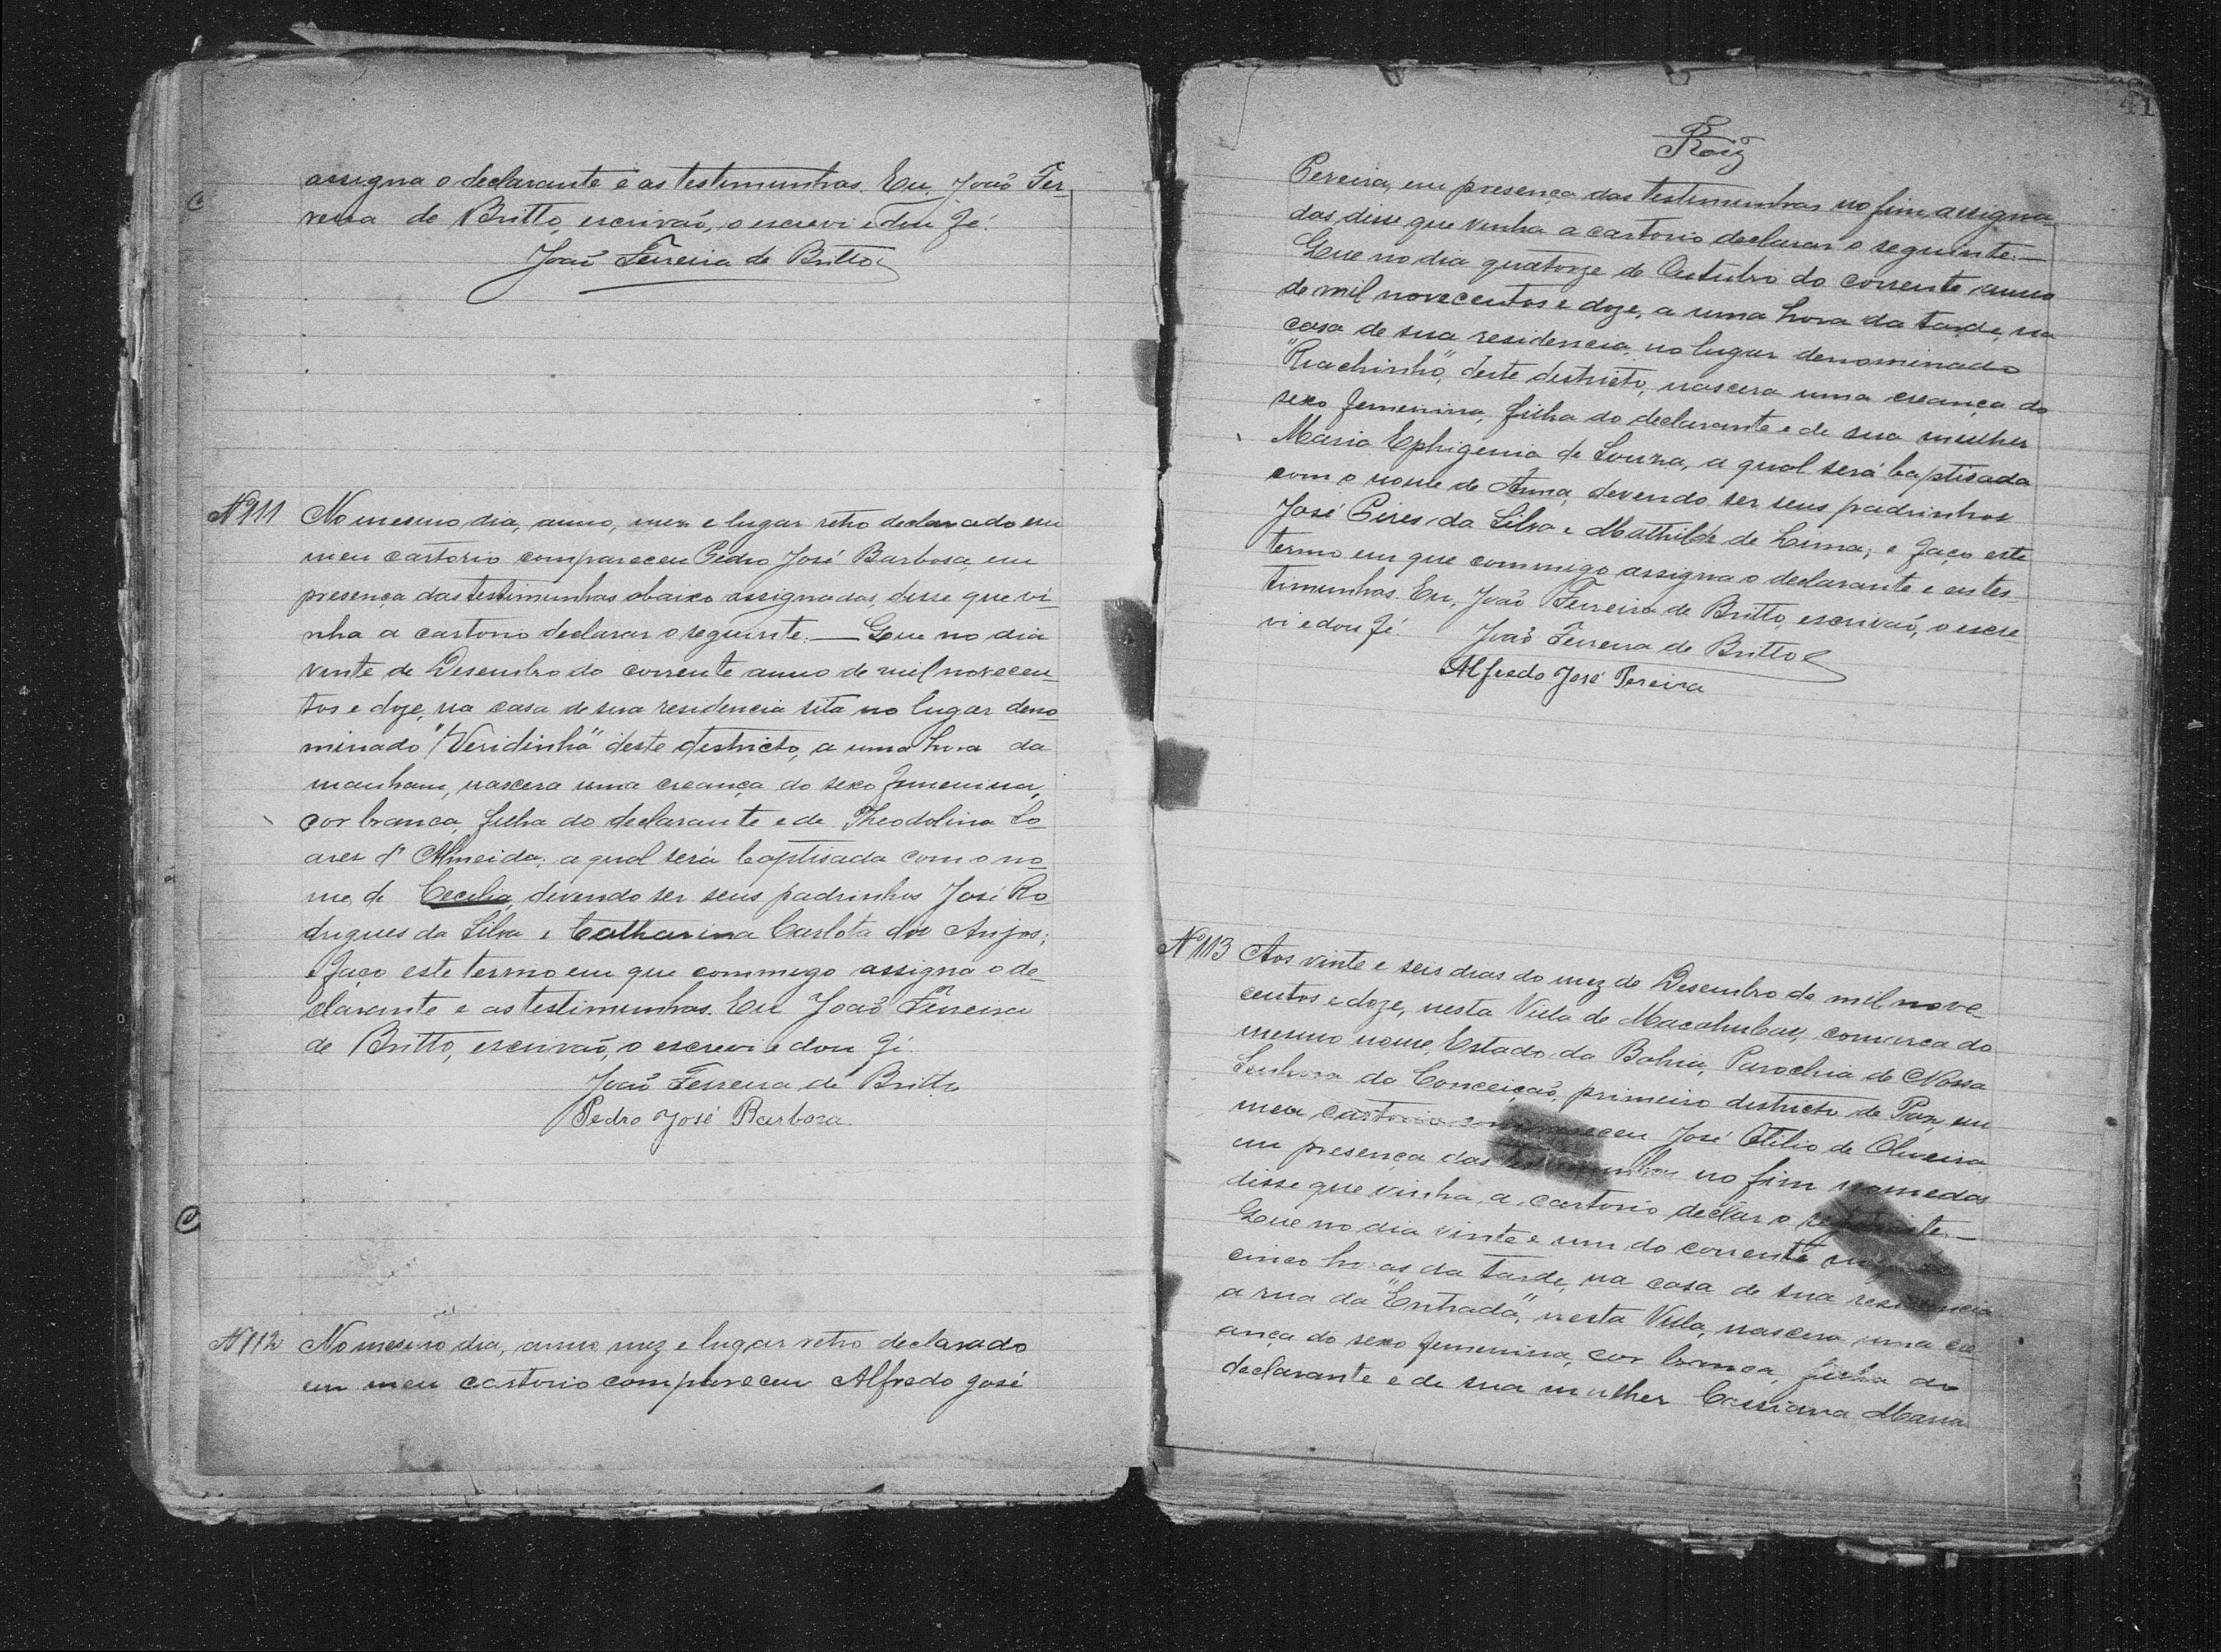 assigna o declarante e as testimunhas. Eu, João Fer
reira de Britto, escrivaõ, o escrevi e dou fé.
João Ferreira de Britto
Nº 111 No mesmo dia, anno, mez e lugar retro declarado em
meu cartorio compareceu Pedro José Barbosa, em
presença das testimunhas abaixo assignadas, disse que vi-
nha a cartorio declarar o seguinte. — Que no dia
vinte de Desembro do corrente anno de mil novecen-
tos e doze, na casa de sua residencia sita no lugar deno
minado "Veridinha" deste destricto, a uma hora da
manham, nascera uma creança do sexo femenina,
cor branca, filha do declarante e de Theodolina So
ares d' Almeida; a qual será baptisada com o no
me de Cecilia, devendo ser seus padrinhos José Ro
drigues da Silva e Catharina Carlota dos Anjos;
e faço este termo em que commigo assigna o de
clarante e as testimunhas. Eu João Ferreira
de Britto, escrivaõ, o escrevi e dou fé.
João Ferreira de Britto
Pedro José Barbosa.
Nº 112 No mesmo dia, anno, mez e lugar retro declarado
em meu cartorio compareceu Alfredo José
41
Roiz
Pereira, em presença das testimunhas no fim assigna
das disse que vinha a cartorio declarar o seguinte. —
Que no dia quatorze de Outubro do corrente anno
de mil novecentos e doze, a uma hora da tarde, na
casa de sua residencia, no lugar denominado
"Riachinho", deste destricto, nascera uma creança do
sexo femenina, filha do declarante e de sua mulher
Maria Ephigenia de Souza, a qual será baptisada
com o nome de Anna, devendo ser seus padrinhos
José Pires da Silva e Mathilde de Lima; e faço este
termo em que commigo assigna o declarante e as tes
timunhas. Eu, João Ferreira de Britto, escrivaõ, o escre
vi e dou fé. João Ferreira de Britto
Alfredo José Pereira
Nº 113 Aos vinte e seis dias do mez de Desembro de mil nove
centos e doze, nesta Villa de Macahubas, comarca do
mesmo nome, Estado da Bahia, Parochia de Nossa
Senhora da Conceição, primeiro destricto de Paz, em
meu cartorio compareceu José Otilio de Oliveira
em presença das testimunhas no fim nomedas
disse que vinha a cartorio declar o seguinte. —
Que no dia vinte e um do corrente
cinco horas da tarde, na casa de sua residencia
a rua da "Entrada", nesta Villa, nascera uma cre
ança do sexo femenina, cor branca, filha do
declarante e de sua mulher Cassiana Maria